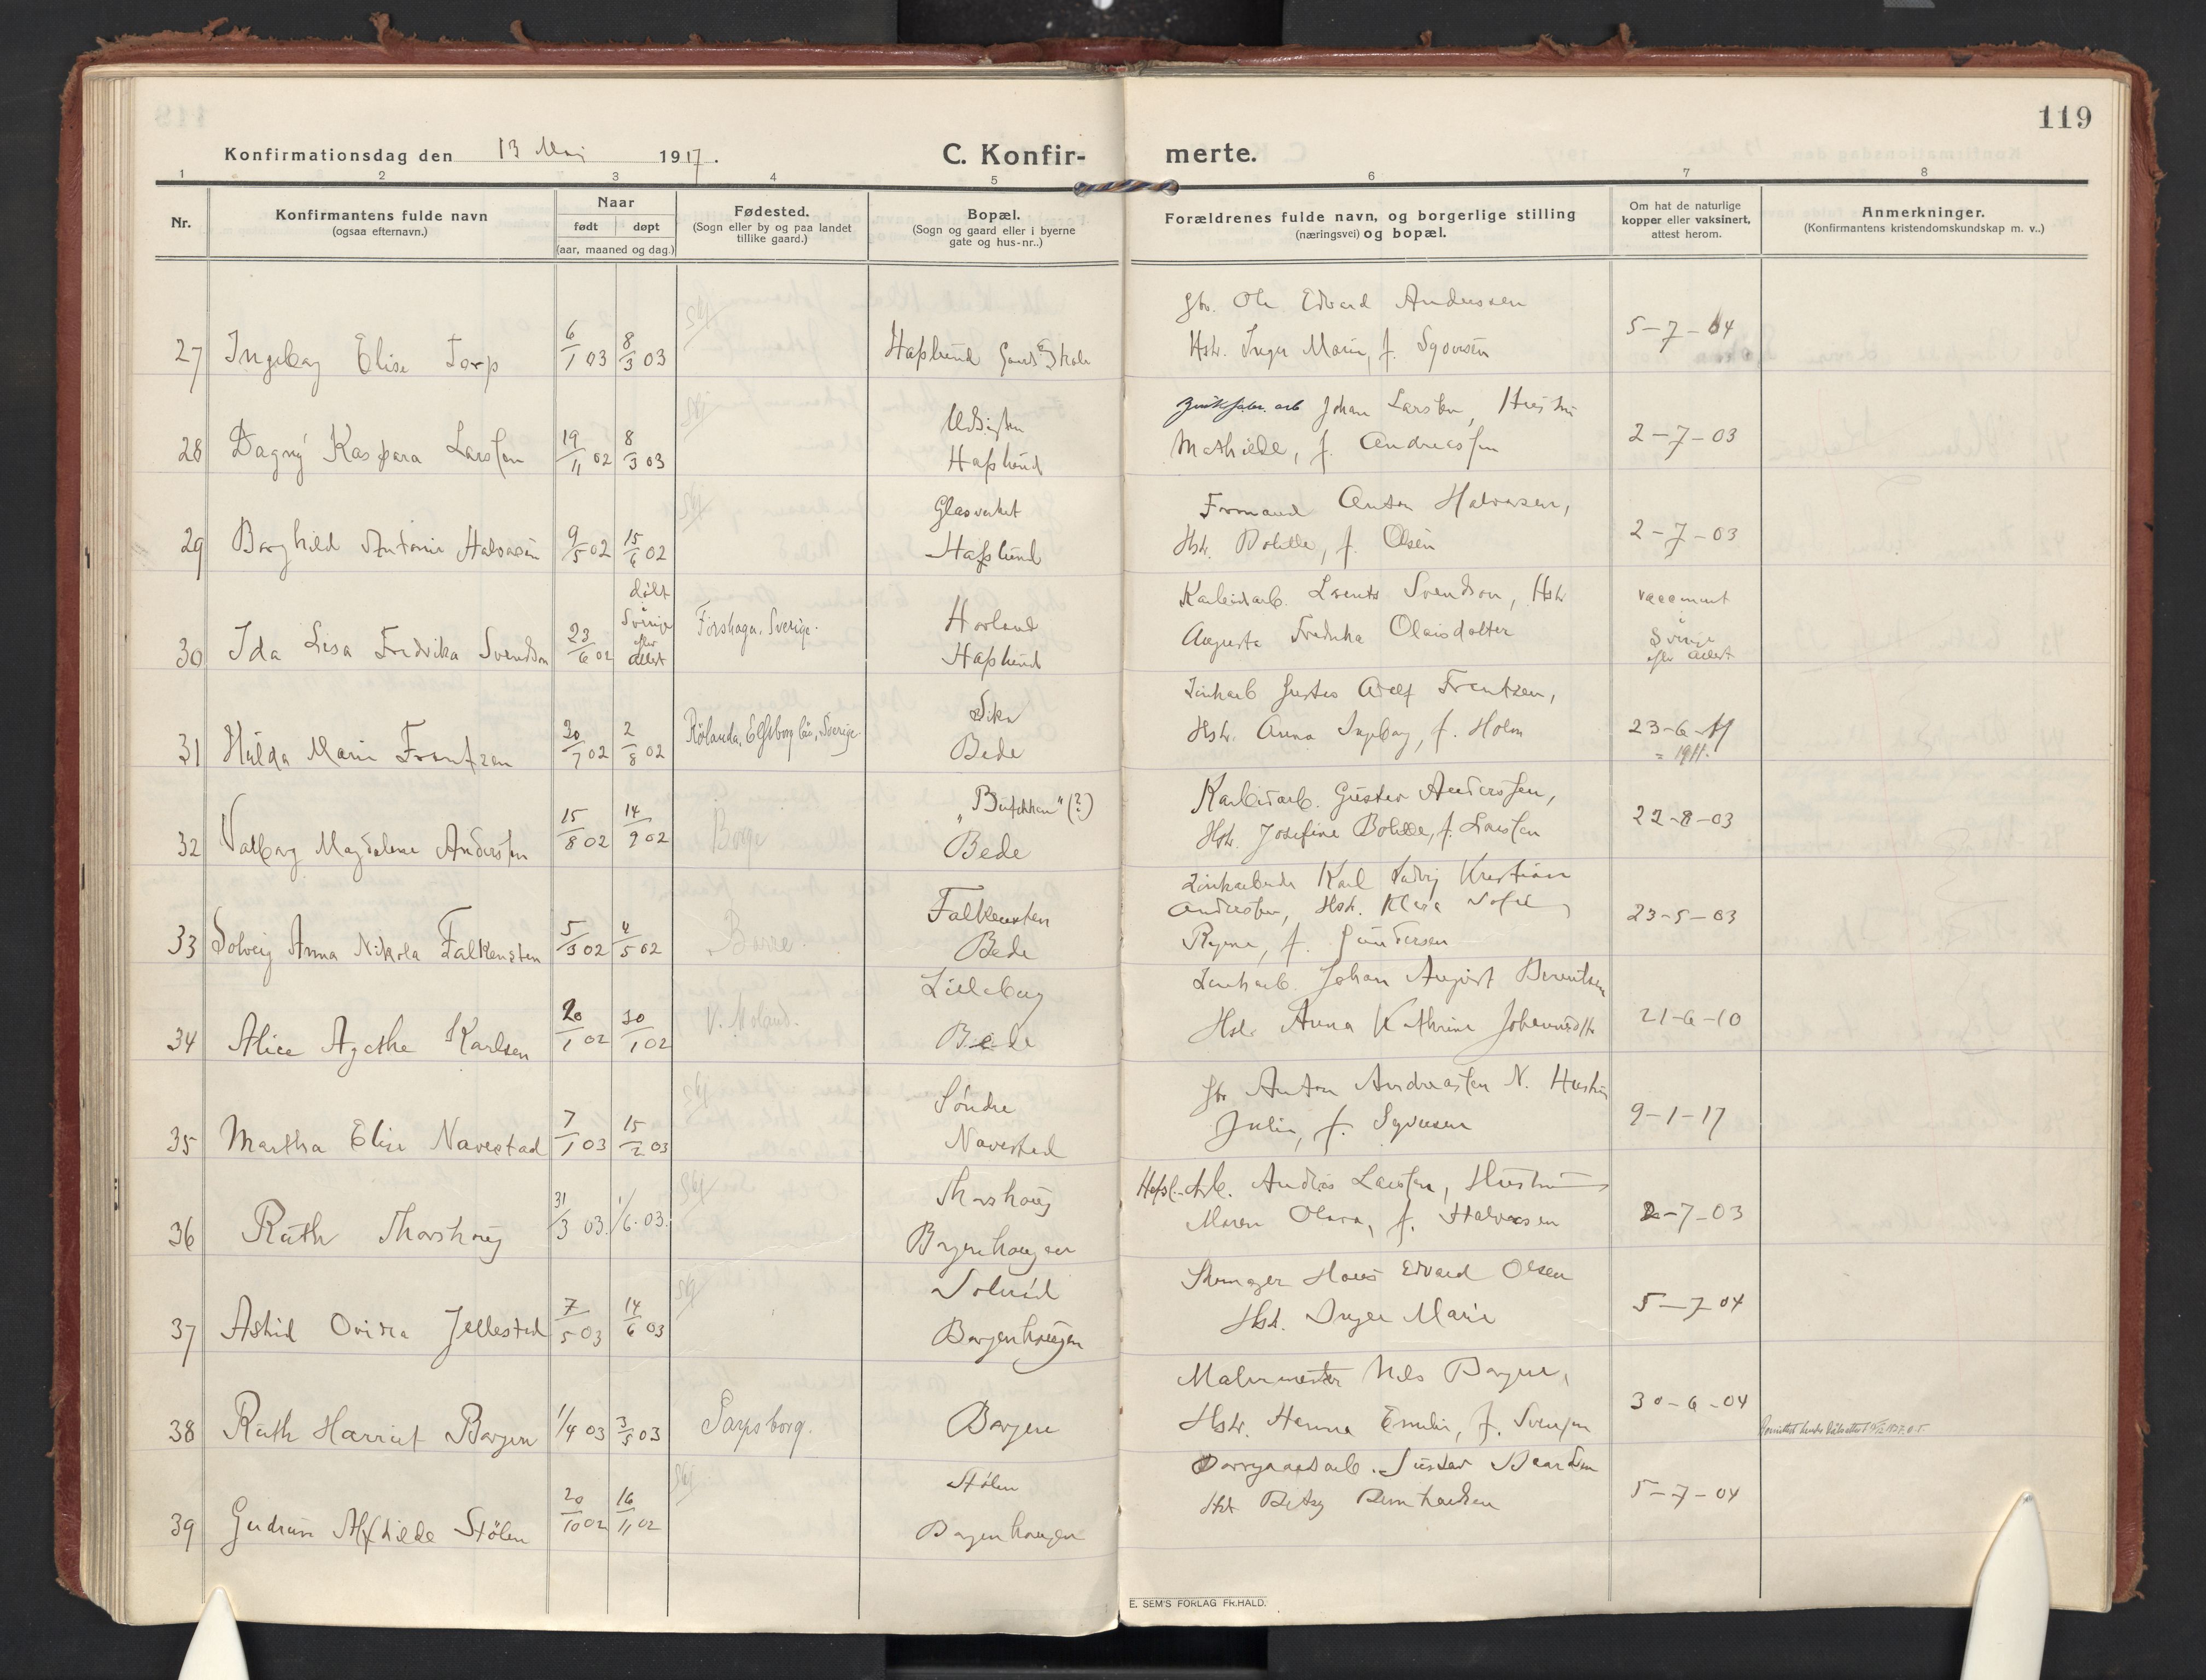 119
Konfirmationsdag den 13 Mai 1917.
C. Konfir- merte.
1 2 3 4 5 6 7 8
Nr.
Konfirmantens fulde navn
(ogsaa efternavn.)
Naar
født døpt
(aar, maaned og dag.)
Fødested.
(Sogn eller by og paa landet
tillike gaard.)
Bopæl.
(Sogn og gaard eller i byerne
gate og hus-nr..)
Forældrenes fulde navn, og borgerlige stilling
(næringsvei) og bopæl.
Om hat de naturlige
kopper eller vaksinert,
attest herom.
Anmerkninger.
(Konfirmantens kristendomskundskap m. v..)
Gbr. Ole Edvard Anderssen
27 Ingeborg Elise Torp 6/1 03 8/3 03 Hafslund Hstr. Inger Marie, f. Syversen 5-7-04
Udsigten Johan Larsen, Hustru
28 Dagny Kaspara Larssen 19/11 02 8/3 03 Hafslund Mathilde, f. Andreassen 2-7-03
Glasverket Formand Anton Halvorsen,
29 Borghild Antonie Halvorsen 9/5 02 15/6 02 Hafslund Hstr. Bolette, f. Olsen 2-7-03
døbt i Sverige efter attest
Horland Karbidarb. Laurits Svendson, Hstr
30 Ida Lisa Fredrika Svendson 23/6 02 Forshaga, Sverige. Hafslund Augusta Fredrika Olaisdotter vaccineret i Sverige efter attest
Sikn Zinkarb Gustav Adolf Frantzen,
31 Hilda Marie Frantzen 20/7 02 2/8 02 Rölanda, Elfsborg län, Sverige. Bede Hstr. Anna Ingeborg, f. Holm 23-6-11
= 1911.
(?) Karbidarb. Gustav Anderssen,
32 Valborg Magdalene Anderssen 15/8 02 14/9 02 Borge Bede Hstr. Josefine Bolette, f. Larssen 22-8-03
Falkensten Zinkarbeider Karl Ludvig Kristian
33 Solveig Anna Nikola Falkensten 5/3 02 4/5 02 Borre. Bede Anderssen, Hstr. Klara Sofie 23-5-03
f. Gundersen
Lilleborg Zinkarb. Johan August Berntsen
34 Alice Agathe Karlsen 20/1 02 30/1 02 V. Moland. Bede Hstr Anna Kathrine 21-6-10
Søndre Gbr Anton Andreassen N. Hustru
35 Martha Elise Navestad 7/1 03 15/2 03 Navestad Julie, f. Syversen 9-1-17
Thorshaug Hafsl.-Arb. Andreas Laursen, Hustru
36 Ruth Thorshaug 31/3 03. 1/6. 03. Borgenhaugen Maren Olava, f. Halvorsen 2-7-03
Solund Hans Edvard Olsen
37 Astrid Ovidia Jellestad 7/5 03 14/6 03 Borgenhaugen Hstr. Inger Marie 5-7-04
Malermester Nils Borgen,
38 Ruth Harriet Borgen 1/4 03 3/5 03 Sarpsborg. Borgen Hstr. Hanna Emilie, f. Svensen 30-6-04
Stølen Borregaardsarb. Gustav
39 Gudrun Alfhilde Stölen 20/10 02 16/11 02 Borgenhaugen Hstr Betsy Bernhardsen 5-7-04
E. SEM'S FORLAG FR.HALD.